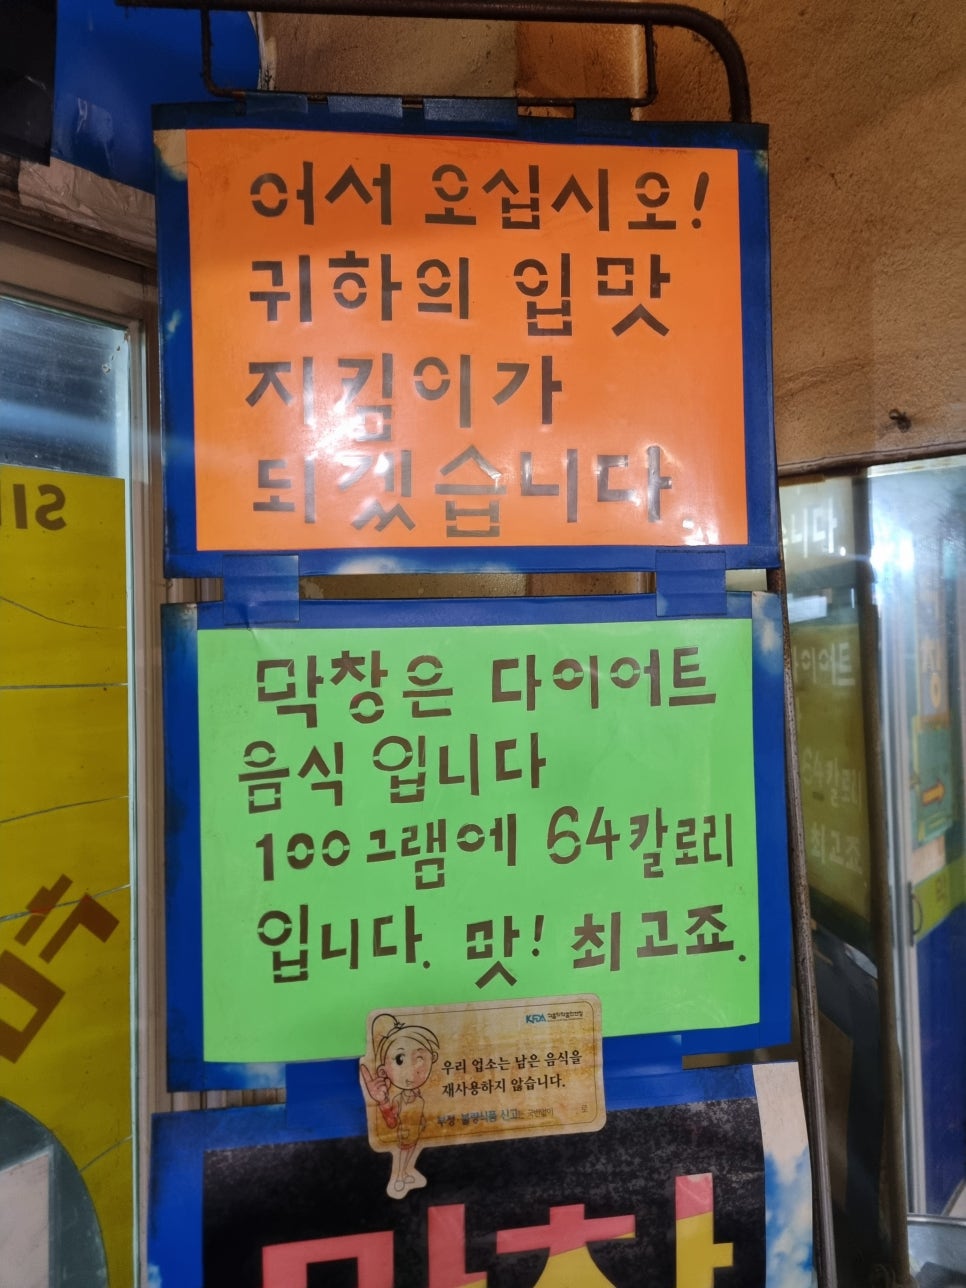 어서 오십시오!
귀하의 입맛
지킴이가
되겠습니다.
막창은 다이어트
음식 입니다
100그램에 64칼로리
입니다. 맛! 최고죠.
KFDA 식품의약품안전청
우리 업소는 남은 음식을
재사용하지 않습니다.
부정·불량식품 신고는 국번없이
막창